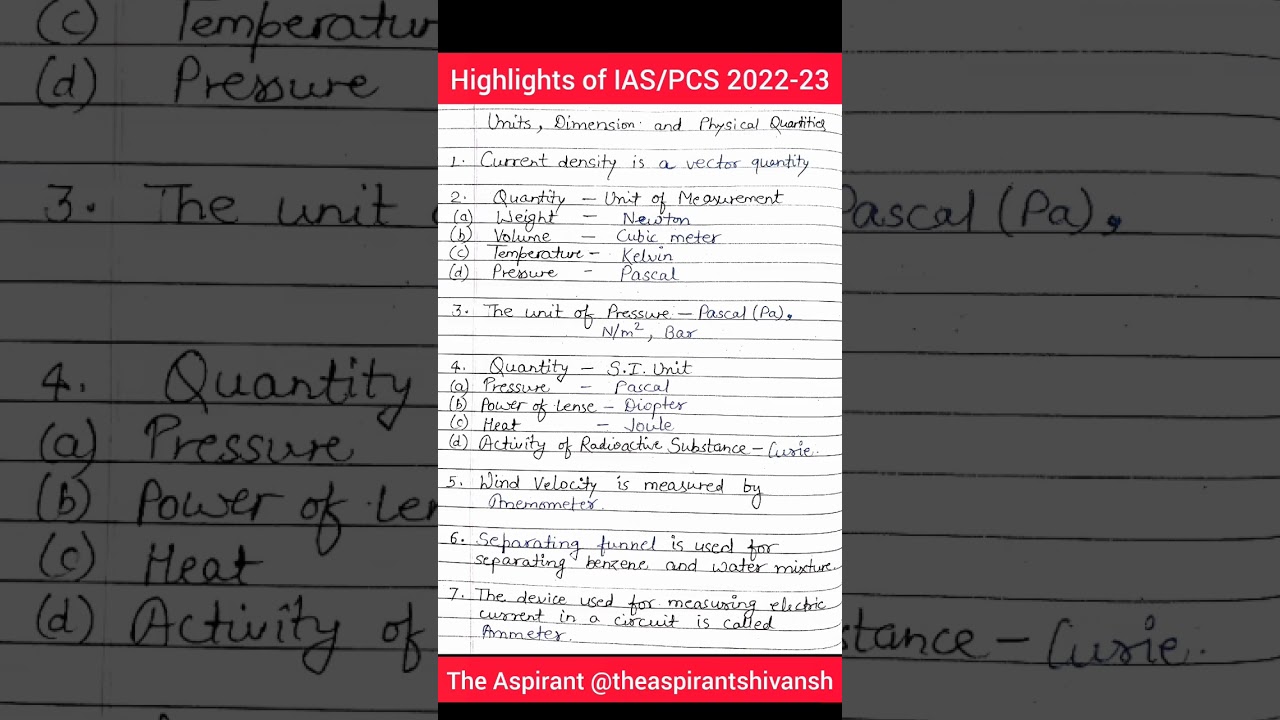 Highlights of IAS/PCS 2022-23
Units, Dimension and Physical Quantities
1. Current density is a vector quantity
2. Quantity - Unit of Measurement
(a) Weight - Newton
(b) Volume - Cubic meter
(c) Temperature - Kelvin
(d) Pressure - Pascal
3. The unit of Pressure - Pascal (Pa),
N/m², Bar
4. Quantity - S.I. Unit
(a) Pressure - Pascal
(b) Power of Lense - Diopter
(c) Heat - Joule
(d) Activity of Radioactive Substance - Curie.
5. Wind Velocity is measured by
Anemometer.
6. Separating funnel is used for
separating benzene and water mixture.
7. The device used for measuring electric
current in a circuit is called
Ammeter.
The Aspirant @theaspirantshivansh
(c) Temperatur
(d) Pressure
3. The unit
Pascal (Pa),
4. Quantity
(a) Pressure
(b) Power of Len
(c) Heat
(d) Activity of
stance - Curie.